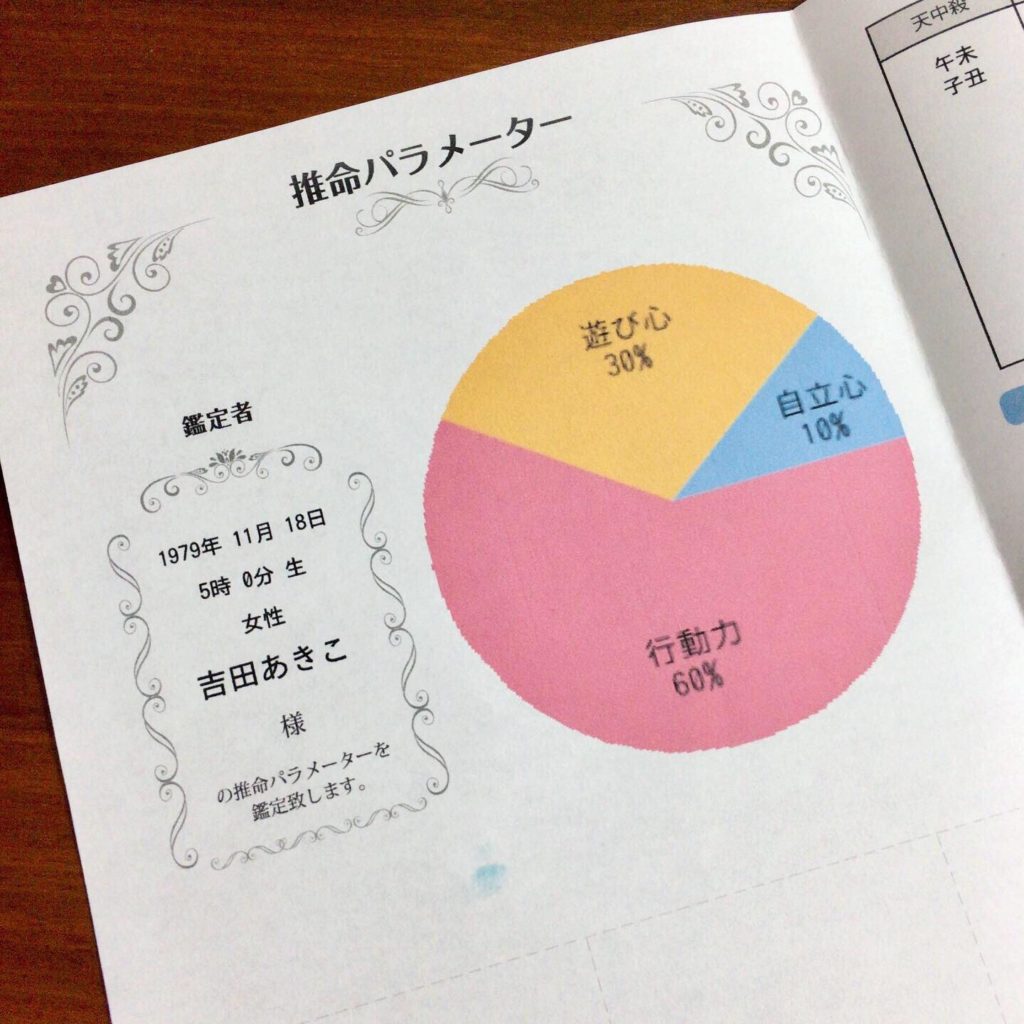 推命パラメーター
天中殺
午未
子丑
遊び心
30%
自立心
10%
行動力
60%
鑑定者
1979年 11月 18日
5時 0分 生
女性
吉田あきこ
様
の推命パラメーターを
鑑定致します。